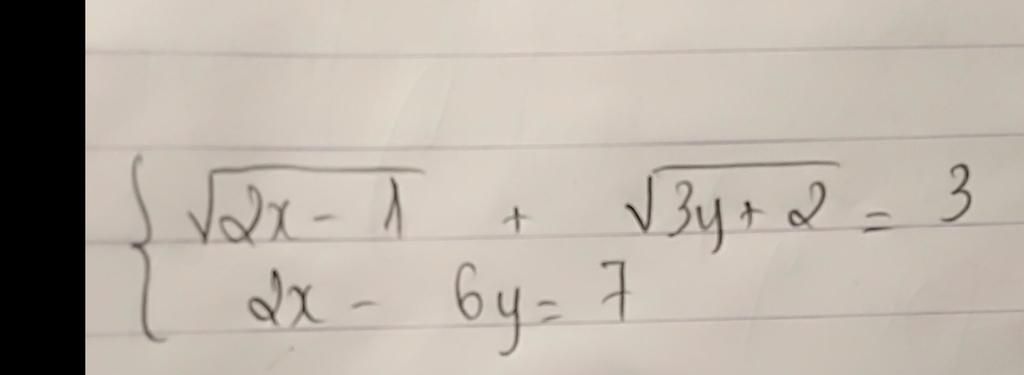 √(2x - 1) + √(3y + 2) = 3
2x - 6y = 7